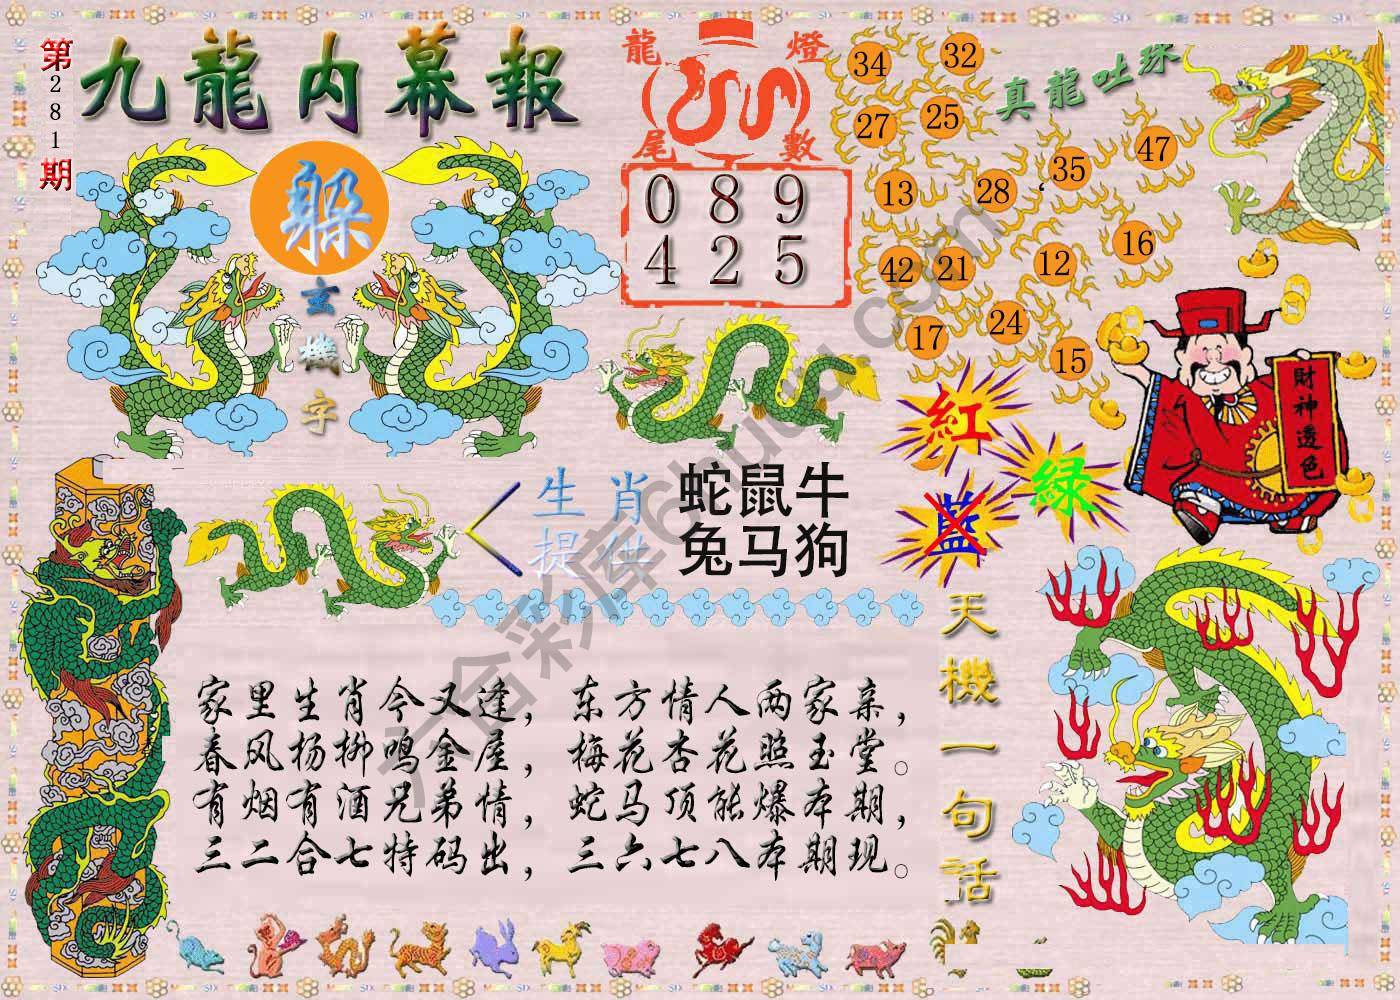 第281期
九龍内幕報
躲
玄機字
龍燈
尾數
0 8 9
4 2 5
34
32
27
25
真龍吐珠
47
35
13
28
16
42
21
12
17
24
15
紅
綠
藍
財神透色
生肖
提供
蛇鼠牛
兔马狗
天機一句話
家里生肖今又逢，东方情人两家亲，
春风杨柳鸣金屋，梅花杏花照玉堂。
有烟有酒兄弟情，蛇马顶能爆本期，
三二合七特码出，三六七八本期现。